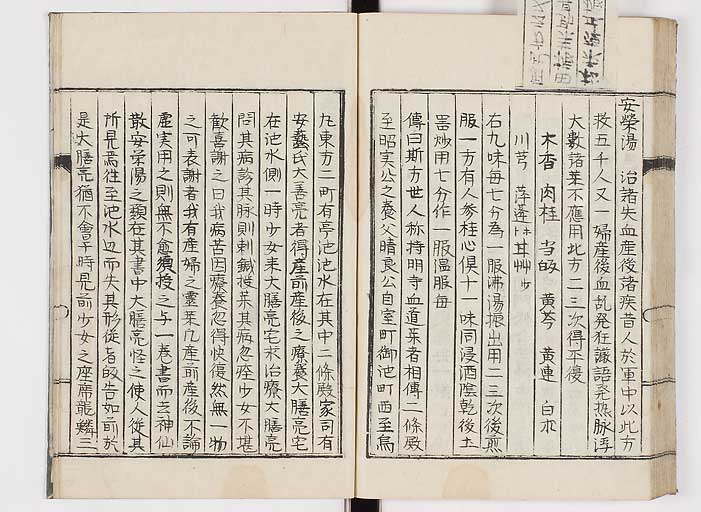 安榮湯　治諸失血産後諸疾昔人於軍中以此方
救五千人又一婦産後血乱発狂譫語発熱脉浮
大數諸薬不應用此方二三次得平復
木香　肉桂　当皈　黄芩　黄連　白朮
川芎　萍蓬　甘艸少
右九味毎七分為一服沸湯振出用二三次後煎
服一方有人参桂心倶十一味同浸酒陰乾後土
器炒用七分作一服温服毎
傳曰斯方世人称持明寺血道薬者相傳二條殿
至昭実公之養父晴良公自室町御池町西至烏
丸東方二町有亭池池水在其中二條殿家司有
安藝氏大善亮者得産前産後之療養大膳亮宅
在池水側一時少女来大膳亮宅求治療大膳亮
問其病診其脉則刺鍼授薬其病忽痊少女不堪
歓喜謝之曰我病苦因療養忽得快復然無一物
之可表謝者我有産婦之霊薬凡産前産後不論
虚実用之則無不愈須授之与一巻書而云神仙
散安栄湯之類在其書中大膳亮怪之使人従其
所見焉往至池水辺而失其形従者皈告如前於
是大膳亮猶不會于時見前少女之座席龍鱗三